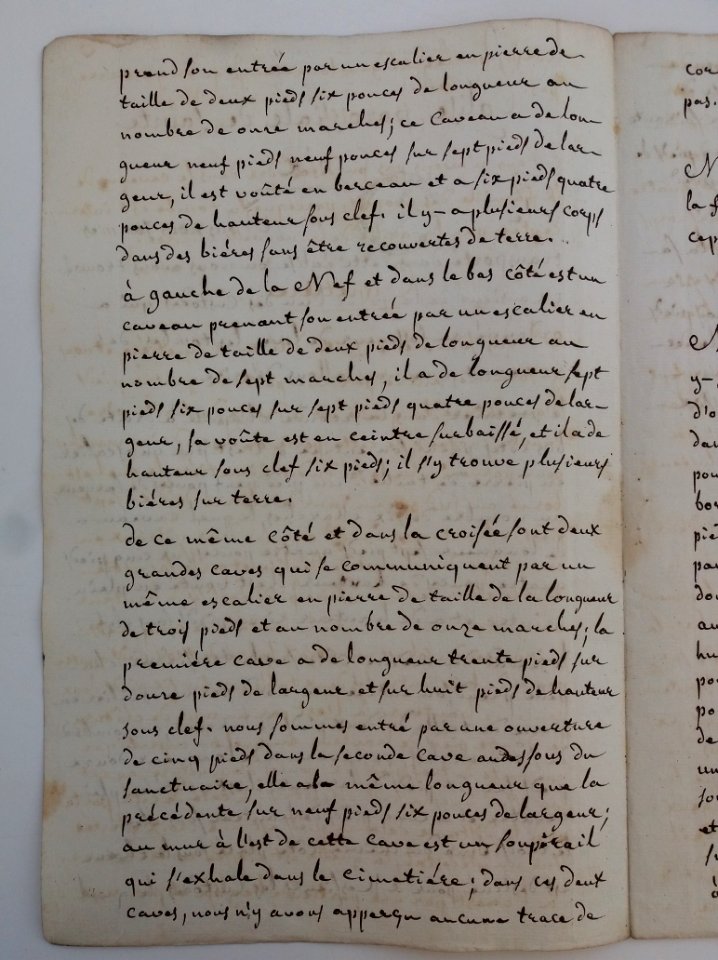 prend son entrée par un escalier en pierre de
taille de deux pieds six pouces de longueur au
nombre de onze marches; ce Caveau a de lon-
gueur neuf pieds neuf pouces sur sept pieds de lar-
geur, il est voûté en berceau et a six pieds quatre
pouces de hauteur sous clef. il y-a plusieurs corps
dans des biéres sans être recouvertes de terre.
à gauche de la Nef et dans le bas côté est un
caveau prenant son entrée par un escalier en
pierre de taille de deux pieds de longueur au
nombre de sept marches, il a de longueur sept
pieds six pouces sur sept pieds quatre pouces de lar-
geur, sa voûte est en ceintre surbaissé, et il a de
hauteur sous clef six pieds; il s'y trouve plusieurs
biéres sur terre.
de ce même côté et dans la croisée sont deux
grandes caves qui se communiquent par un
même escalier en pierre de taille de la longueur
de trois pieds et au nombre de onze marches; la
premiére cave a de longueur trente pieds sur
douze pieds de largeur et sur huit pieds de hauteur
sous clef. nous sommes entré par une ouverture
de cinq pieds dans la seconde cave au dessous du
sanctuaire, elle a la même longueur que la
précédente sur neuf pieds six pouces de largeur;
au mur à l'est de cette cave est un soupirail
qui s'exhale dans le Cimetiére; dans ces deux
caves, nous n'y avons apperçu aucune trace de
cor
pas.
N
la f
cep
y-
d'o
dan
pou
bor
pié
par
do
au
hu
po
po
de
un
so
et
à